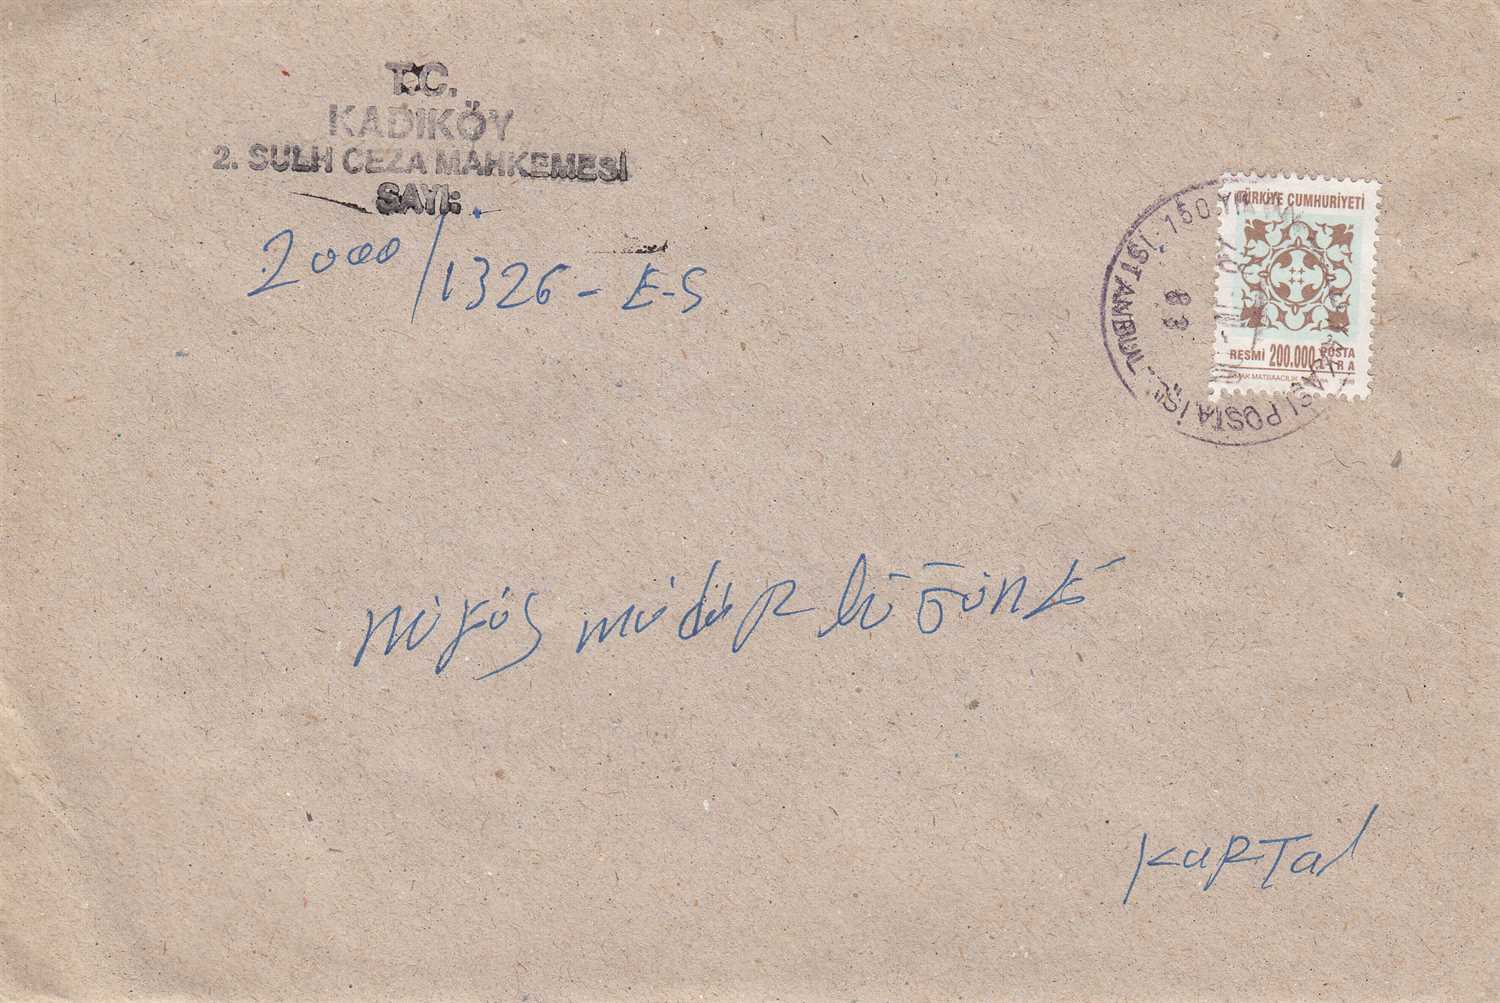 T.C.
KADIKÖY
2. SULH CEZA MAHKEMESİ
SAYI:
2000/1326-E-S
TÜRKİYE CUMHURİYETİ
RESMİ 200.000 POSTA
LİRA
İSTANBUL
POSTA İŞL.
nüfüs müdürlüğüne
Kartal